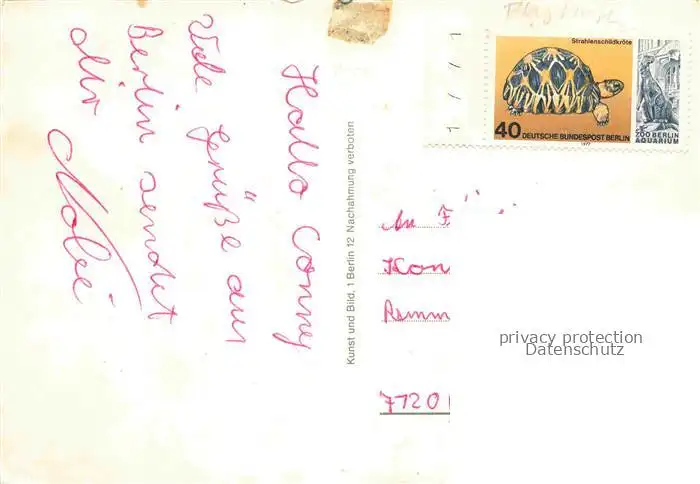 Hallo Conny
Viele Grüße aus
Berlin sendet
dir
Kunst und Bild, 1 Berlin 12 Nachahmung verboten
Strahlenschildkröte
40 DEUTSCHE BUNDESPOST BERLIN
1977
ZOO BERLIN
AQUARIUM
An F
Kon
Ramm
7120
privacy protection
Datenschutz